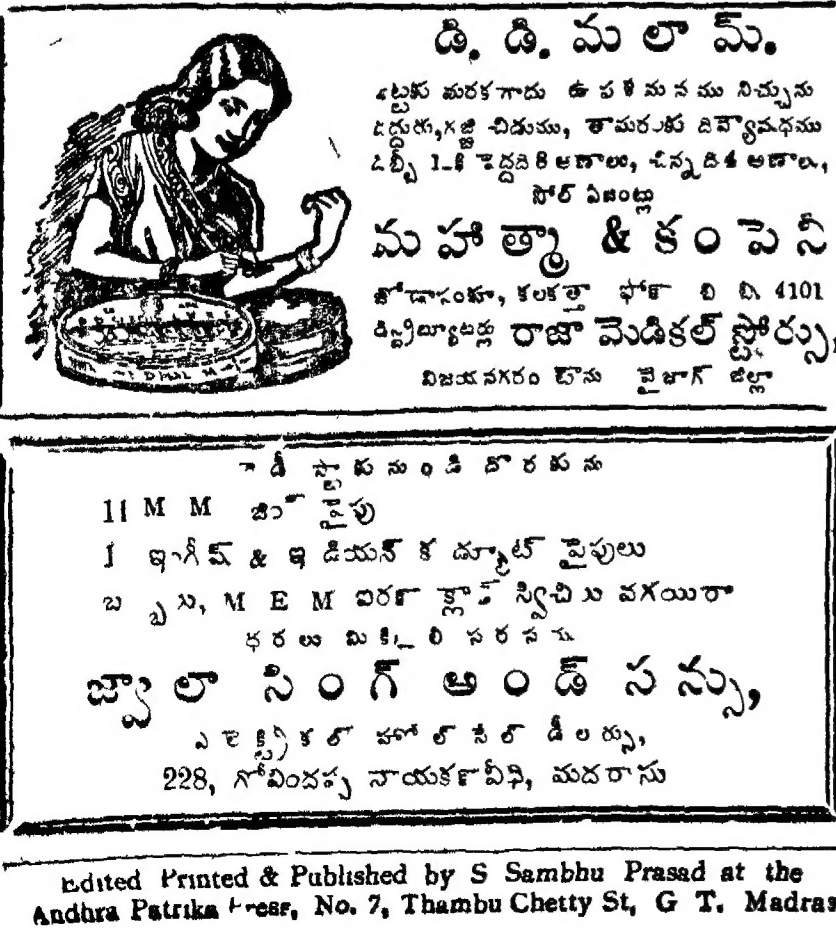 డి. డి. మలామ్.
మరకగాదు ఉపశమనము నిచ్చును
గజ్జి చిడుము, తామరలకు దివ్యౌషధము
డబ్బీ 1-కి పెద్దది 8 అణాలు, చిన్నది 4 అణాలు,
సోల్ ఏజంట్లు
మహాత్మా & కంపెనీ
జోడాసంకూ, కలకత్తా ఫోన్ బి బి. 4101
డిస్ట్రిబ్యూటర్లు రాజా మెడికల్ స్టోర్సు,
విజయనగరం టౌను వైజాగ్ జిల్లా
రెడీ స్టాకునుండి దొరకును
11 M M జింక్ పైపు
ఇంగ్లీష్ & ఇండియన్ కండ్యూట్ పైపులు
M E M ఐరన్ క్లాడ్ స్విచిలు వగయిరా
ధరలు మిక్కిలి సరసము
జ్వాలా సింగ్ అండ్ సన్సు,
ఎలెక్ట్రికల్ హోల్ సేల్ డీలర్సు,
228, గోవిందప్ప నాయకన్ వీధి, మదరాసు
Edited Printed & Published by S Sambhu Prasad at the
Andhra Patrika Press, No. 7, Thambu Chetty St, G T. Madras